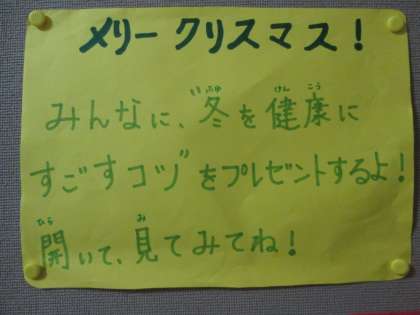 メリークリスマス！
みんなに、"冬を健康に
すごすコツ"をプレゼントするよ！
開いて、見てみてね！